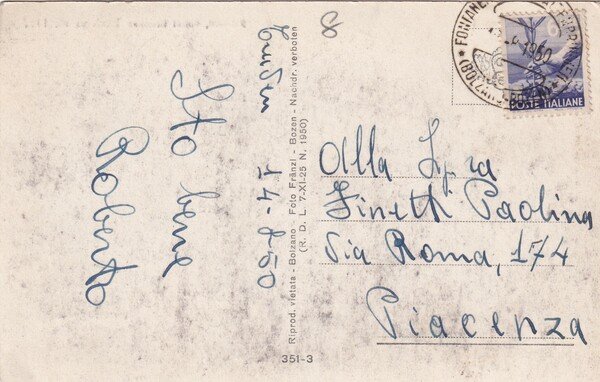 8
14-8-50
Sto bene
Roberto
Riprod. vietata - Bolzano - Foto Fränzl - Bozen - Nachdr. verboten
(R. D. L. 7-XI-25 N. 1950)
351-3
POSTE ITALIANE
Alla Sig.ra
Zinetti Paolina
Via Roma, 174
Piacenza